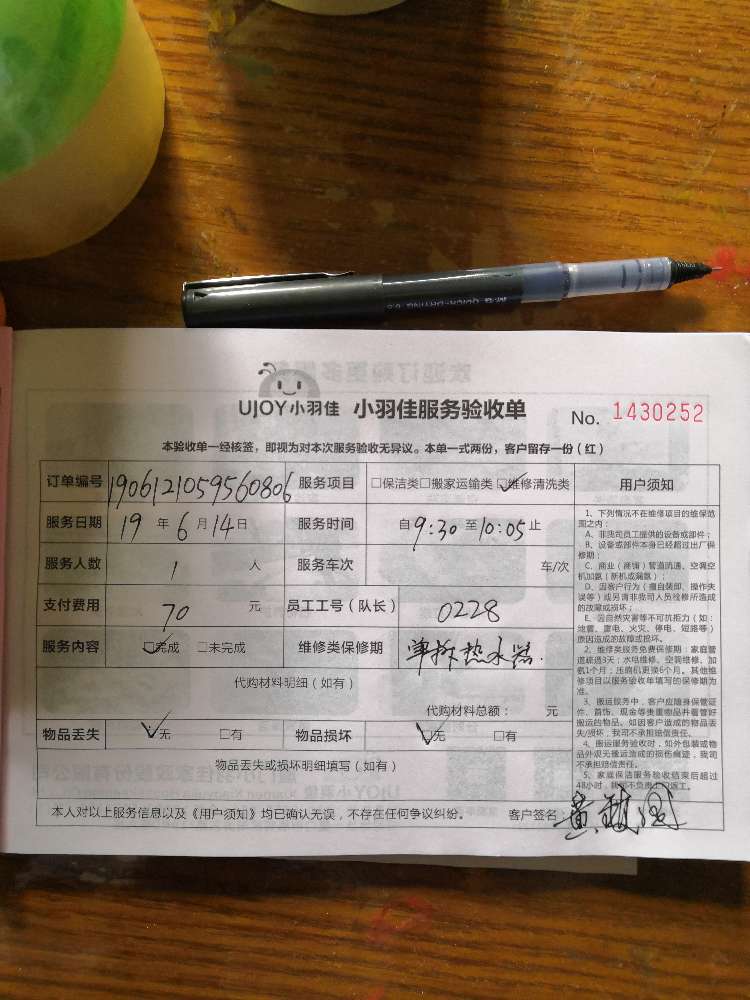 UJOY小羽佳 小羽佳服务验收单 No. 1430252
本验收单一经核签，即视为对本次服务验收无异议。本单一式两份，客户留存一份（红）
订单编号 1906121059560806 服务项目 □保洁类□搬家运输类☑维修清洗类 用户须知
服务日期 19 年 6 月 14 日 服务时间 自 9:30 至 10:05 止
服务人数 1 人 服务车次 车/次
支付费用 70 元 员工工号（队长） 0228
服务内容 ☑完成 □未完成 维修类保修期 单拆热水器.
代购材料明细（如有）
代购材料总额： 元
物品丢失 ☑无 □有 物品损坏 ☑无 □有
物品丢失或损坏明细填写（如有）
本人对以上服务信息以及《用户须知》均已确认无误，不存在任何争议纠纷。 客户签名：黄
1、下列情况不在维修项目的维保范
围之内：
A、非我司员工提供的设备或部件；
B、设备或部件本身已经超过出厂保
修期；
C、商业（商铺）管道疏通、空调空
机加氨（新机或漏氨）；
D、因客户行为（擅自装卸、操作失
误等）或另请非我司人员检修所造成
的故障或损坏；
E、因自然灾害等不可抗力（如：
地震、雷电、火灾、停电、短路等）
原因造成的故障或损坏。
2、维修类服务免费保修期：家庭管
道疏通3天；水电维修、空调维修、加
氨1个月；压缩机更换6个月。其他维
修项目以服务验收单填写的保修期为
准。
3、搬运服务中，客户应随身保管证
件、首饰、现金等贵重物品并看管好
搬运的物品。如因客户造成的物品丢
失/损坏，我司不承担赔偿责任。
4、搬运服务验收时，如外包装或物
品外观无搬运造成的损伤痕迹，我司
不承担赔偿责任。
5、家庭保洁服务验收结束后超过
48小时，我司不负责上门返工。